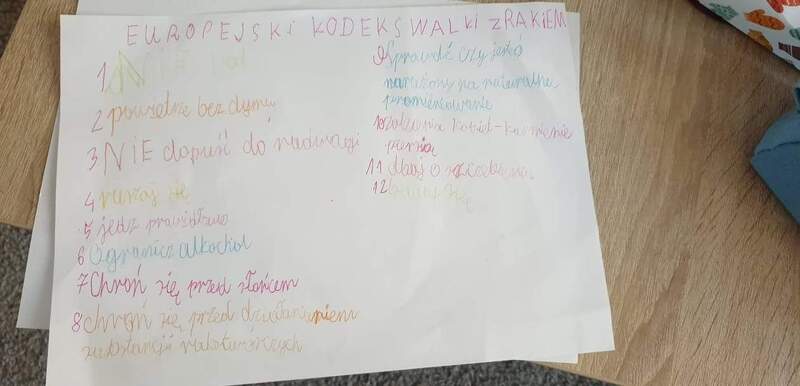 EUROPEJSKI KODEKS WALKI Z RAKIEM
1 Nie pal
2 powietrze bez dymu
3 NIE dopuść do nadwagi
4 ruszaj się
5 jedz prawidłowo
6 Ogranicz alkochol
7 Chroń się przed słońcem
8 chroń się przed działaniem
substancji rakotwórczych
9 Sprawdź czy jesteś
narażony na naturalne
promieniowanie
10 kobiet - karmienie
piersią
11 dbaj o
12 się